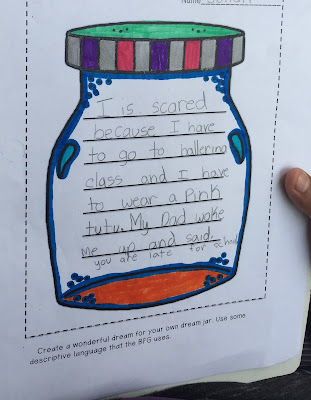 Name
I is scared
because I have
to go to ballering
class and I have
to wear a Pink
tutu. My Dad wake
me up and said.
you are late for school
Create a wonderful dream for your own dream jar. Use some
descriptive language that the BFG uses.